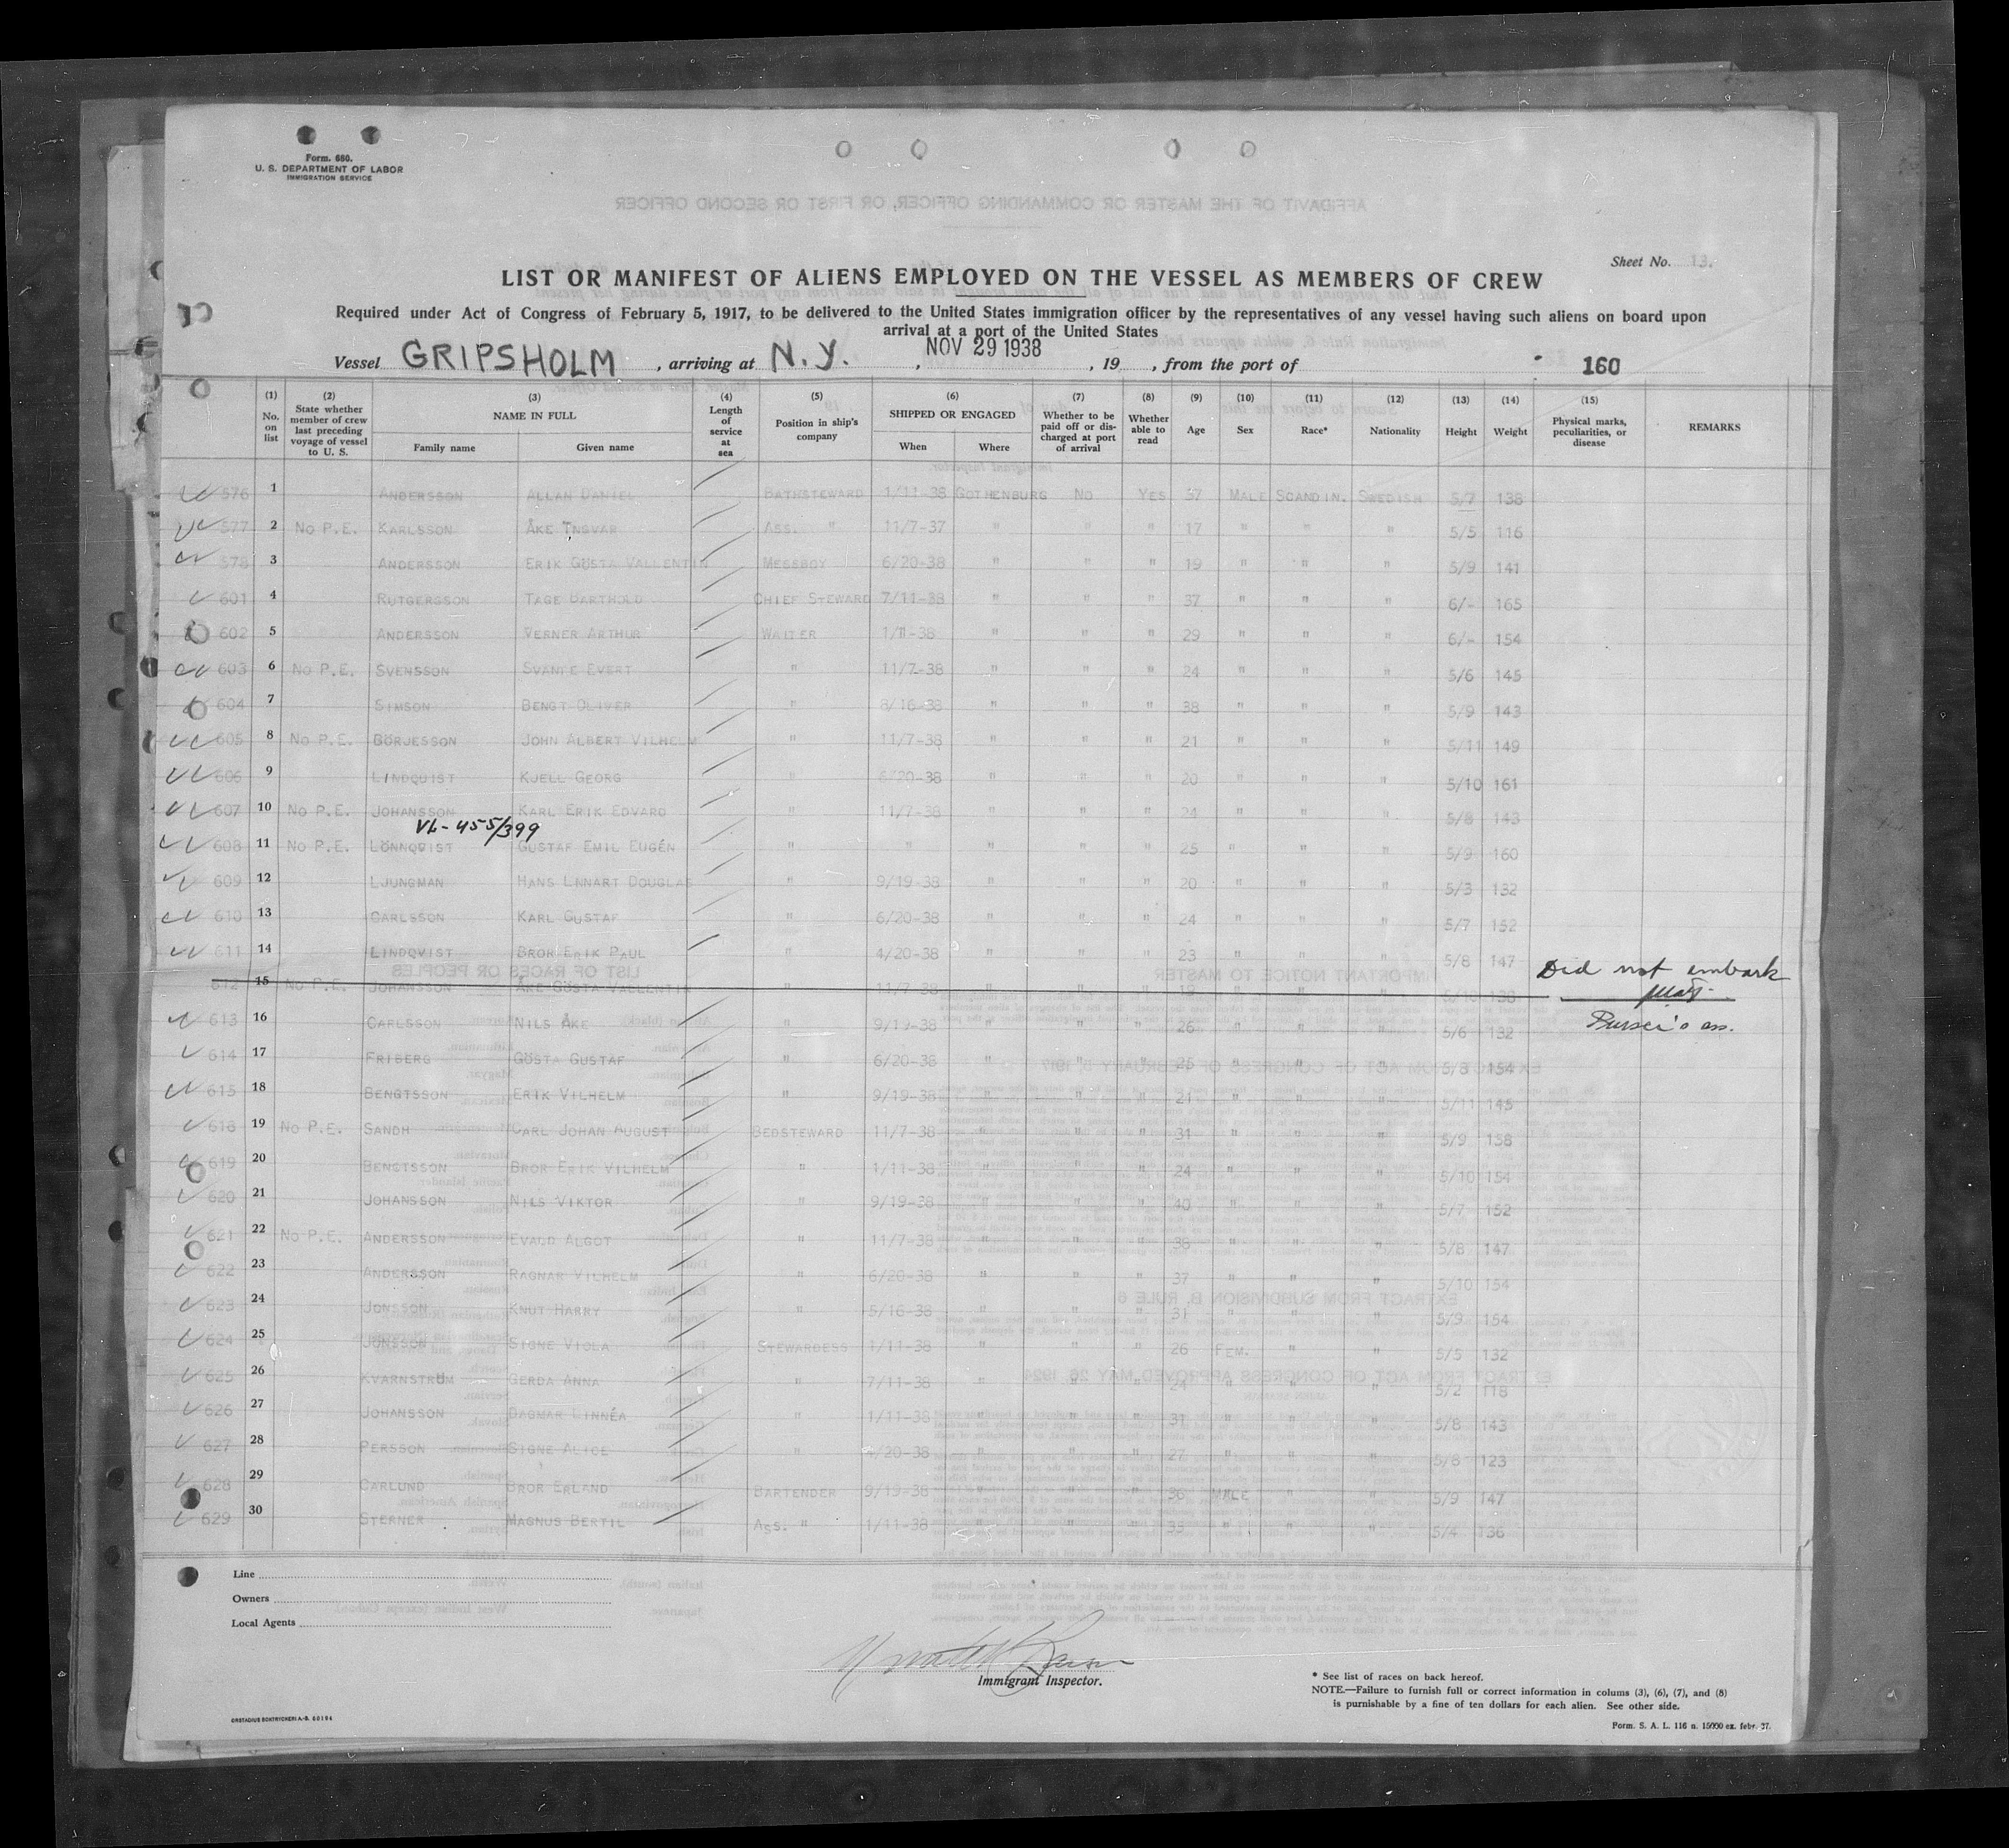 Form. 680.
U. S. DEPARTMENT OF LABOR
IMMIGRATION SERVICE
Sheet No. 13.
LIST OR MANIFEST OF ALIENS EMPLOYED ON THE VESSEL AS MEMBERS OF CREW
Required under Act of Congress of February 5, 1917, to be delivered to the United States immigration officer by the representatives of any vessel having such aliens on board upon
arrival at a port of the United States
Vessel GRIPSHOLM , arriving at N.Y. , NOV 29 1938 , 19 , from the port of 160
(1) No. on list (2) State whether member of crew last preceding voyage of vessel to U. S. (3) NAME IN FULL Family name Given name (4) Length of service at sea (5) Position in ship's company (6) SHIPPED OR ENGAGED When Where (7) Whether to be paid off or discharged at port of arrival (8) Whether able to read (9) Age (10) Sex (11) Race* (12) Nationality (13) Height (14) Weight (15) Physical marks, peculiarities, or disease REMARKS
576 1 ANDERSSON ALLAN DANIEL BATHSTEWARD 1/11-38 GOTHENBURG NO YES 37 MALE SCANDIN. SWEDISH 5/7 138
577 2 NO P.E. KARLSSON ÅKE INGVAR ASS. " 11/7-37 " " " 17 " " " 5/5 116
578 3 ANDERSSON ERIK GÖSTA VALLENTIN MESSBOY 6/20-38 " " " 19 " " " 5/9 141
601 4 RUTGERSSON TAGE BARTHOLD CHIEF STEWARD 7/11-38 " " " 37 " " " 6/- 165
602 5 ANDERSSON VERNER ARTHUR WAITER 1/11-38 " " " 29 " " " 6/- 154
603 6 NO P.E. SVENSSON SVANTE EVERT " 11/7-38 " " " 24 " " " 5/6 145
604 7 SIMSON BENGT OLIVER " 8/16-38 " " " 38 " " " 5/9 143
605 8 NO P.E. BÖRJESSON JOHN ALBERT VILHELM " 11/7-38 " " " 21 " " " 5/11 149
606 9 LINDQUIST KJELL GEORG " 6/20-38 " " " 20 " " " 5/10 161
607 10 NO P.E. JOHANSSON KARL ERIK EDVARD " 11/7-38 " " " 24 " " " 5/8 143
VL-455/399
608 11 NO P.E. LÖNNQVIST GUSTAF EMIL EUGÉN " " " " " 25 " " " 5/9 160
609 12 LJUNGMAN HANS LNNART DOUGLAS " 9/19-38 " " " 20 " " " 5/3 132
610 13 CARLSSON KARL GUSTAF " 6/20-38 " " " 24 " " " 5/7 152
611 14 LINDQVIST BROR ERIK PAUL " 4/20-38 " " " 23 " " " 5/8 147
612 15 NO P.E. JOHANSSON ÅKE GÖSTA VALLENTIN " 11/7-38 " " " 19 " " " 5/10 138 Did not embark
613 16 CARLSSON NILS ÅKE " 9/19-38 " " " 26 " " " 5/6 132 Purser's ass.
614 17 FRIBERG GÖSTA GUSTAF " 6/20-38 " " " 25 " " " 5/8 154
615 18 BENGTSSON ERIK VILHELM " 9/19-38 " " " 21 " " " 5/11 145
618 19 NO P.E. SANDH CARL JOHAN AUGUST BEDSTEWARD 11/7-38 " " " 31 " " " 5/9 158
619 20 BENGTSSON BROR ERIK VILHELM " 1/11-38 " " " 24 " " " 5/10 154
620 21 JOHANSSON NILS VIKTOR " 9/19-38 " " " 40 " " " 5/7 152
621 22 NO P.E. ANDERSSON EVALD ALGOT " 11/7-38 " " " 38 " " " 5/8 147
622 23 ANDERSSON RAGNAR VILHELM " 6/20-38 " " " 37 " " " 5/10 154
623 24 JONSSON KNUT HARRY " 5/16-38 " " " 31 " " " 5/9 154
624 25 JONSSON SIGNE VIOLA STEWARDESS 1/11-38 " " " 26 FEM. " " 5/5 132
625 26 KVARNSTRÖM GERDA ANNA " 7/11-38 " " " 24 " " " 5/2 118
626 27 JOHANSSON DAGMAR LINNÉA " 1/11-38 " " " 31 " " " 5/8 143
627 28 PERSSON SIGNE ALICE " 4/20-38 " " " 27 " " " 5/8 123
628 29 CARLUND BROR ERLAND BARTENDER 9/19-38 " " " 36 MALE " " 5/9 147
629 30 STERNER MAGNUS BERTIL ASS. " 1/11-38 " " " 35 " " " 5/4 136
Line
Owners
Local Agents
Immigrant Inspector.
* See list of races on back hereof.
NOTE.—Failure to furnish full or correct information in colums (3), (6), (7), and (8)
is purnishable by a fine of ten dollars for each alien. See other side.
ORSTADIUS BOKTRYCKERI A.-B. 60194
Form. S. A. L. 116 n. 15000 ex. febr. 37.